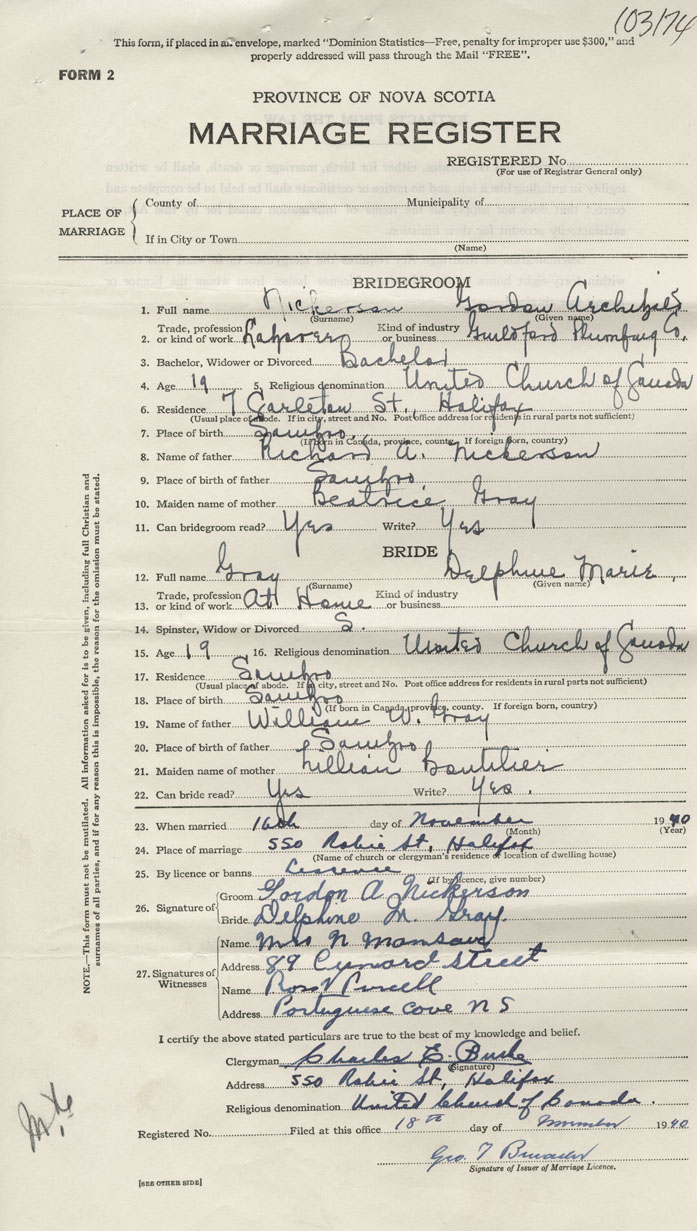 103174
This form, if placed in an envelope, marked “Dominion Statistics—Free, penalty for improper use $300,” and
properly addressed will pass through the Mail “FREE”.
FORM 2
PROVINCE OF NOVA SCOTIA
MARRIAGE REGISTER
REGISTERED No.
(For use of Registrar General only)
PLACE OF MARRIAGE
County of Municipality of
If in City or Town
(Name)
BRIDEGROOM
1. Full name Nickerson Gordon Archibald
(Surname) (Given name)
2. Trade, profession or kind of work Laborer Kind of industry or business Guildford Plumbing Co.
3. Bachelor, Widower or Divorced Bachelor
4. Age 19 5. Religious denomination United Church of Canada
6. Residence 7 Carleton St., Halifax
(Usual place of abode. If in city, street and No. Post office address for residents in rural parts not sufficient)
7. Place of birth Sambro,
(If born in Canada, province, county. If foreign born, country)
8. Name of father Richard A. Nickerson
9. Place of birth of father Sambro.
10. Maiden name of mother Beatrice Gray
11. Can bridegroom read? Yes Write? Yes
BRIDE
12. Full name Gray Delphine Marie,
(Surname) (Given name)
13. Trade, profession or kind of work At Home Kind of industry or business
14. Spinster, Widow or Divorced S.
15. Age 19 16. Religious denomination United Church of Canada
17. Residence Sambro
(Usual place of abode. If in city, street and No. Post office address for residents in rural parts not sufficient)
18. Place of birth Sambro
(If born in Canada, province, county. If foreign born, country)
19. Name of father William W. Gray
20. Place of birth of father Sambro
21. Maiden name of mother Lillian Boutilier
22. Can bride read? Yes Write? Yes.
23. When married 16th day of November 1940
(Month) (Year)
24. Place of marriage 550 Robie St, Halifax
(Name of church or clergyman's residence or location of dwelling house)
25. By licence or banns
(If by licence, give number)
26. Signature of
Groom Gordon A Nickerson
Bride Delphine M. Gray.
27. Signatures of Witnesses
Name Mrs N
Address 89 Cunard Street
Name Ross Purcell
Address Portuguese Cove N S
I certify the above stated particulars are true to the best of my knowledge and belief.
Clergyman Charles E. Burke
(Signature)
Address 550 Robie St, Halifax
Religious denomination United Church of Canada.
Registered No. Filed at this office 18th day of November 1940.
Geo. T
Signature of Issuer of Marriage Licence.
[SEE OTHER SIDE]
NOTE.—This form must not be mutilated. All information asked for is to be given, including full Christian and
surnames of all parties, and if for any reason this is impossible, the reason for the omission must be stated.